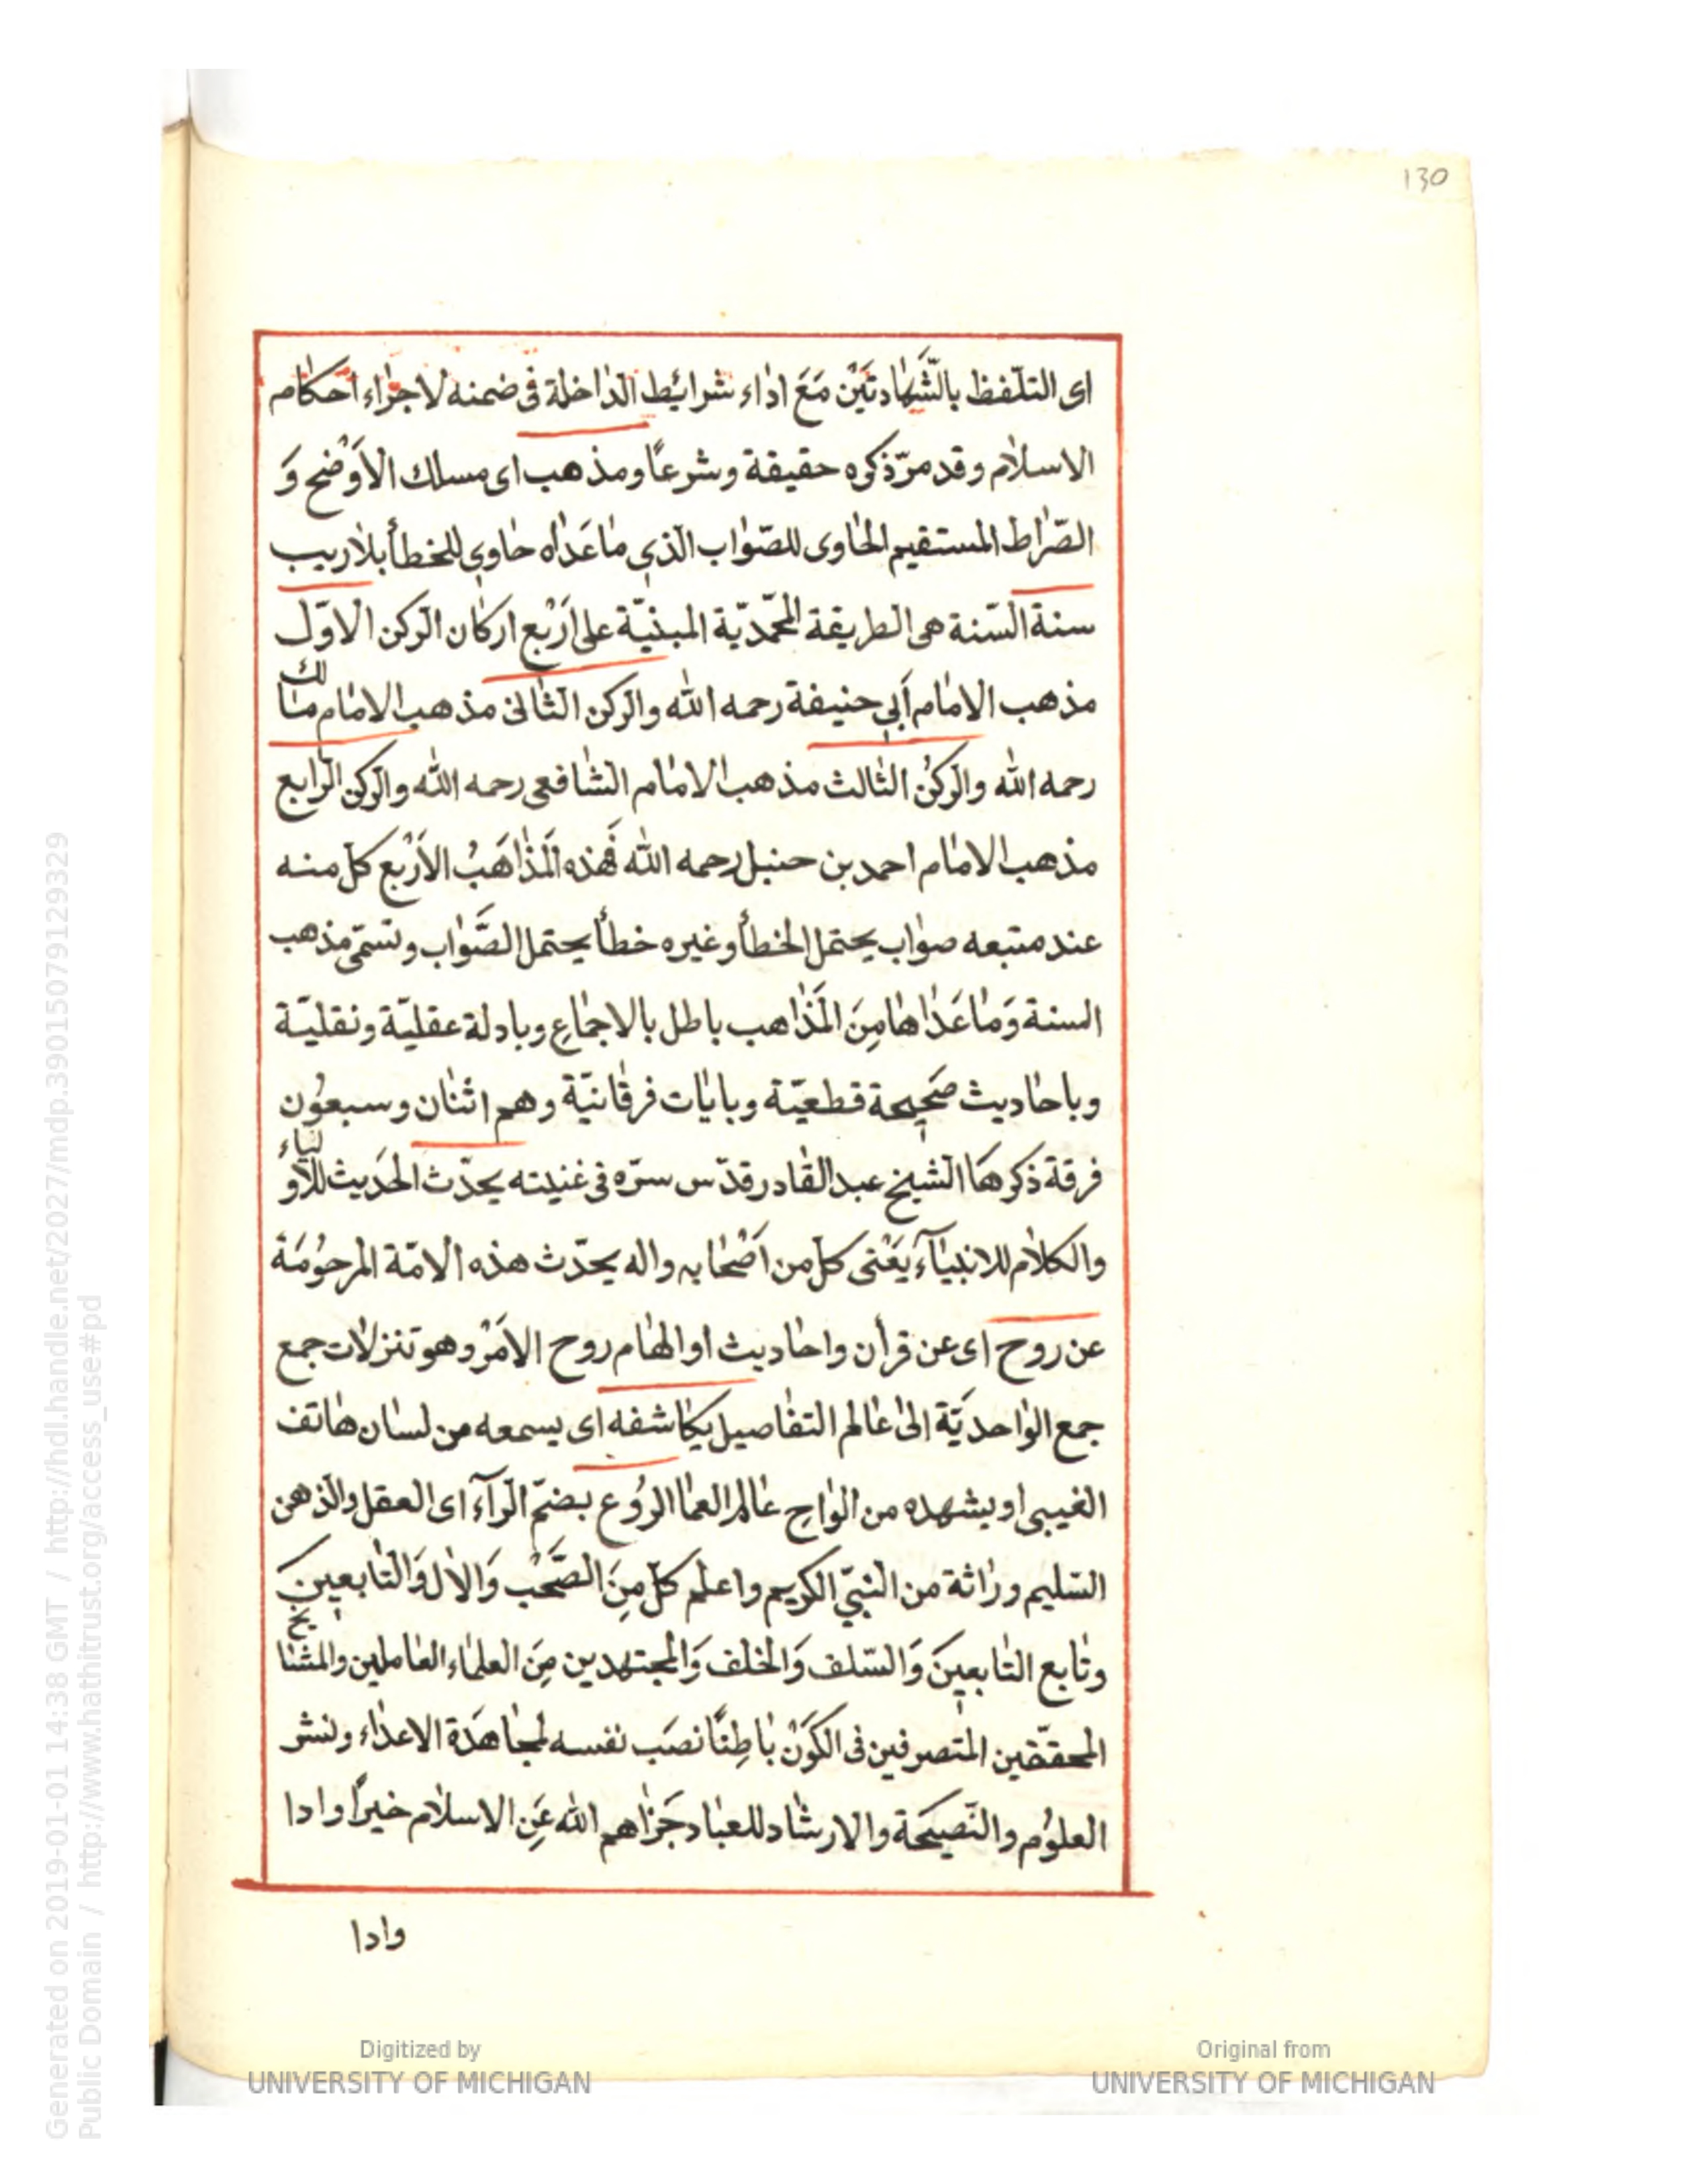 130
اى التلّفظ بالشَّهٰادتَيْن مَعَ ادٰاء شرائيط الدٰاخلة فى ضمنه لاجرٰاء احكٰام
الاسلٰام وقد مرّ ذكره حقيقة وشرعًا ومذهب اى مسلك الاَوْضح وَ
الصّرٰاط المستقيم الحٰاوى للصّوٰاب الّذي مٰا عَدٰاه حٰاوي للخطأ بلاٰ ريب
سنة السّنة هى الطريقة المحمّديّة المبنيّة على اَرْبع اركٰان الرّكن الاوّل
مذهب الامٰام اَبي حنيفة رحمه اللّٰه والرّكن الثّانى مذهب الامٰام مٰالك
رحمه اللّٰه والرّكنُ الثّالث مذهب الامٰام الشّافعى رحمه اللّٰه والرّكن الرّابع
مذهب الامٰام احمد بن حنبل رحمه اللّٰه فَهٰذه المَذٰاهَبُ الاَرْبع كلّ منه
عند متبعه صوٰاب يحتمل الخطأ وغيره خطأ يحتمل الصَّوٰاب وتسمّى مذهب
السنة وَمٰا عَدٰاهٰا مِنَ المَذٰاهب باطل بالاجمٰاعِ وبادلة عقليّة ونقليّة
وباحٰاديث صَحِيحة قطعيّة وبايٰات فرقٰانيّة وهم اثنٰان وسبعوُن
فرقة ذكرهَا الشّيخ عبد القٰادر قدّس سرّه فى غنيته يحدّث الحَديث للاَوُلياء
والكلاٰم للانبيٰآء يَعْنى كلّ من اَصْحٰابه واله يحدّث هذه الامّة المرحوُمَة
عن روح اى عن قرأن واحٰاديث او الهٰام روح الاَمْر وهو تنزلاٰت جمع
جمع الوٰاحديَّة الىٰ عٰالم التفٰاصيل يكٰاشفه اى يسمعه من لسٰان هٰاتف
الغيبى او يشهده من الوٰاحِ عٰالم العمٰا الرُوُع بضمّ الرّآء اى العقل والذهن
السّليم ورٰاثة من النّبيّ الكريم واعلم كلّ مِنَ الصَّحْب وَالاٰل وَالتّٰابعين
وتٰابع التٰابعينَ وَالسّلف وَالخلف وَالمجتهدين مِنَ العلمٰاء العٰاملين والمشٰايخ
المحقّقين المتصرفين فى الكَوْن بٰاطِنًا نصَب نفسه لمجٰاهَدة الاعدٰاء ولنشر
العلوُم والنّصيحَة والارشٰاد للعبٰاد جَزٰاهم اللّٰه عَنِ الاسلٰام خيرًا وادا
وادا
Digitized by
UNIVERSITY OF MICHIGAN
Original from
UNIVERSITY OF MICHIGAN
Generated on 2019-01-01 14:38 GMT / http://hdl.handle.net/2027/mdp.39015079129329
Public Domain / http://www.hathitrust.org/access_use#pd